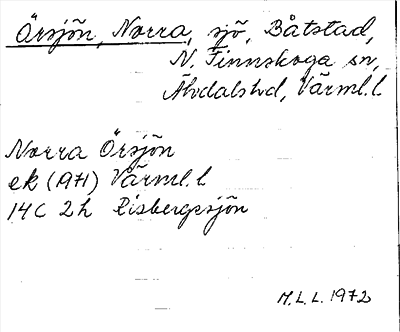 Örsjön, Norra, sjö, Båtstad,
N. Finnskoga sn,
Älvdals hd, Värml. l.
Norra Örsjön
ek (1971) Värml. l
14C 2h Risbergssjön
M.L.L. 1972